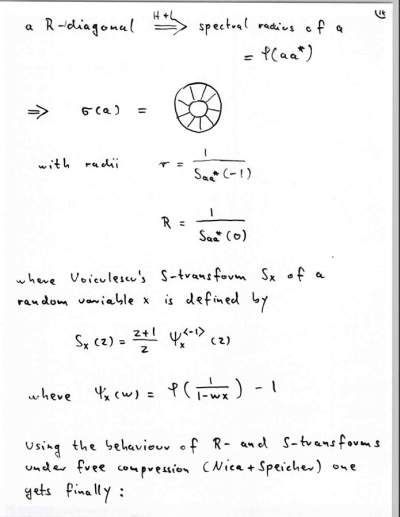 14
a R-diagonal H+L ⟹ spectral radius of a
= φ(aa*)
⟹ σ(a) =
with radii r = 1 / S_{aa*}(-1)
R = 1 / S_{aa*}(0)
where Voiculescu's S-transform S_x of a
random variable x is defined by
S_x(z) = z+1 / z ψ_x^{<-1>}(z)
where ψ_x(w) = φ( 1 / 1-wx ) - 1
Using the behaviour of R- and S-transforms
under free compression (Nica+Speicher) one
gets finally: